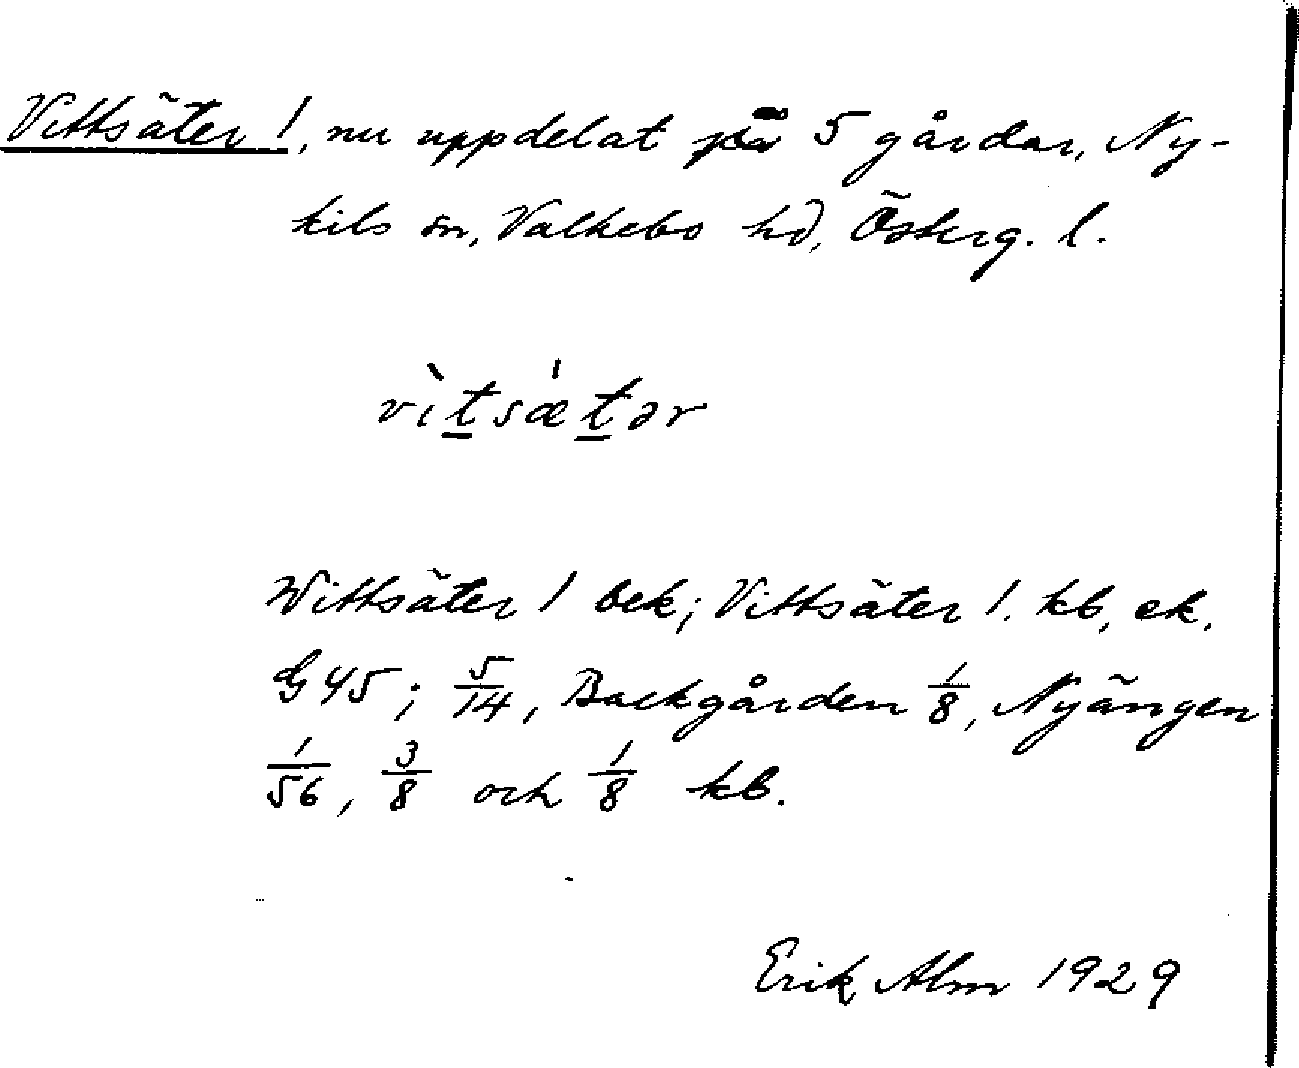 Vittsäter 1, nu uppdelat på 5 gårdar, Ny-
kils sn, Valkebo hd, Österg. l.
vìt̲sǽt̲ər
Wittsäter 1 bek; Vittsäter 1. kb, ek.
G 45; 5/14, Backgården 1/8, Nyängen
1/56, 3/8 och 1/8 kb.
Erik Alm 1929